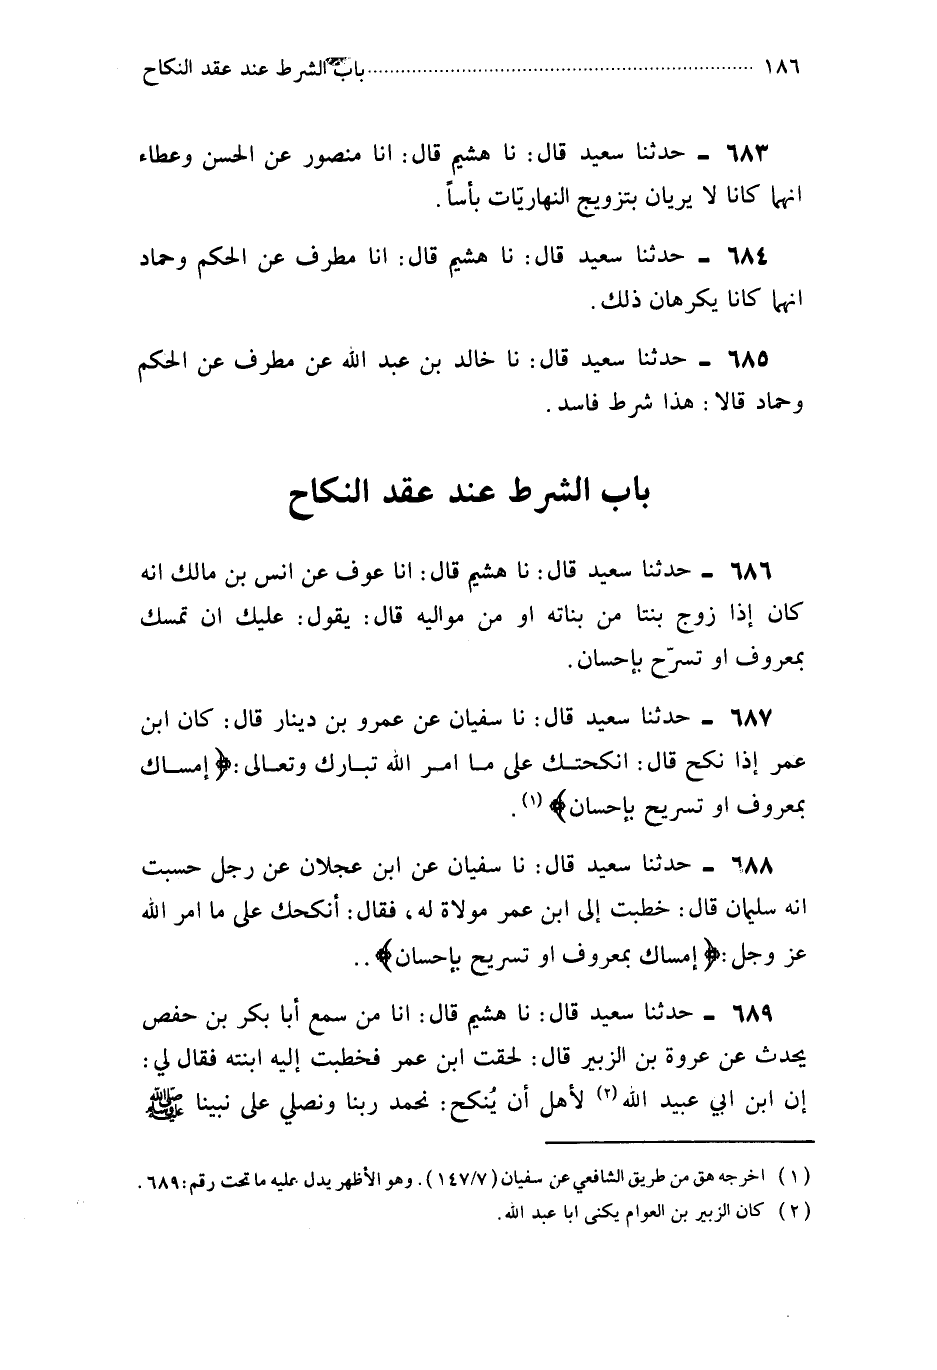 ١٨٦ ........ باب الشرط عند عقد النكاح
٦٨٣ ـ حدثنا سعيد قال: نا هشيم قال: انا منصور عن الحسن وعطاء
انهما كانا لا يريان بتزويج النهاريّات بأساً.
٦٨٤ ـ حدثنا سعيد قال: نا هشيم قال: انا مطرف عن الحكم وحماد
انهما كانا يكرهان ذلك.
٦٨٥ ـ حدثنا سعيد قال: نا خالد بن عبد الله عن مطرف عن الحكم
وحماد قالا: هذا شرط فاسد.
باب الشرط عند عقد النكاح
٦٨٦ ـ حدثنا سعيد قال: نا هشيم قال: انا عوف عن انس بن مالك انه
كان إذا زوج بنتا من بناته او من مواليه قال: يقول: عليك ان تمسك
بمعروف او تسرّح بإحسان.
٦٨٧ ـ حدثنا سعيد قال: نا سفيان عن عمرو بن دينار قال: كان ابن
عمر إذا نكح قال: انكحتك على ما امر الله تبارك وتعالى: ﴿إمساك
بمعروف او تسريح بإحسان﴾ (١).
٦٨٨ ـ حدثنا سعيد قال: نا سفيان عن ابن عجلان عن رجل حسبت
انه سليمان قال: خطبت إلى ابن عمر مولاة له، فقال: أنكحك على ما امر الله
عز وجل: ﴿إمساك بمعروف او تسريح بإحسان﴾..
٦٨٩ ـ حدثنا سعيد قال: نا هشيم قال: انا من سمع أبا بكر بن حفص
يحدث عن عروة بن الزبير قال: لحقت ابن عمر فخطبت إليه ابنته فقال لي:
إن ابن ابي عبيد الله (٢) لأهل أن يُنكح: نحمد ربنا ونصلي على نبينا ﷺ
(١) اخرجه هق من طريق الشافعي عن سفيان (١٤٧/٧). وهو الأظهر يدل عليه ما تحت رقم: ٦٨٩.
(٢) كان الزبير بن العوام يكنى ابا عبد الله.